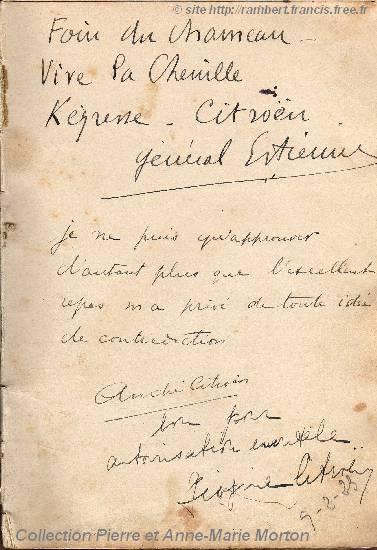 © site http://rambert.francis.free.fr
Foin du chameau -
Vive la Chenille
Kégresse - Citroën
Général Estienne
je ne puis qu'approuver
d'autant plus que l'excellent
repas m'a privé de toute idée
de contradiction
André Citroën
bon pour
autorisation
Citroën
9-2-23
Collection Pierre et Anne-Marie Morton